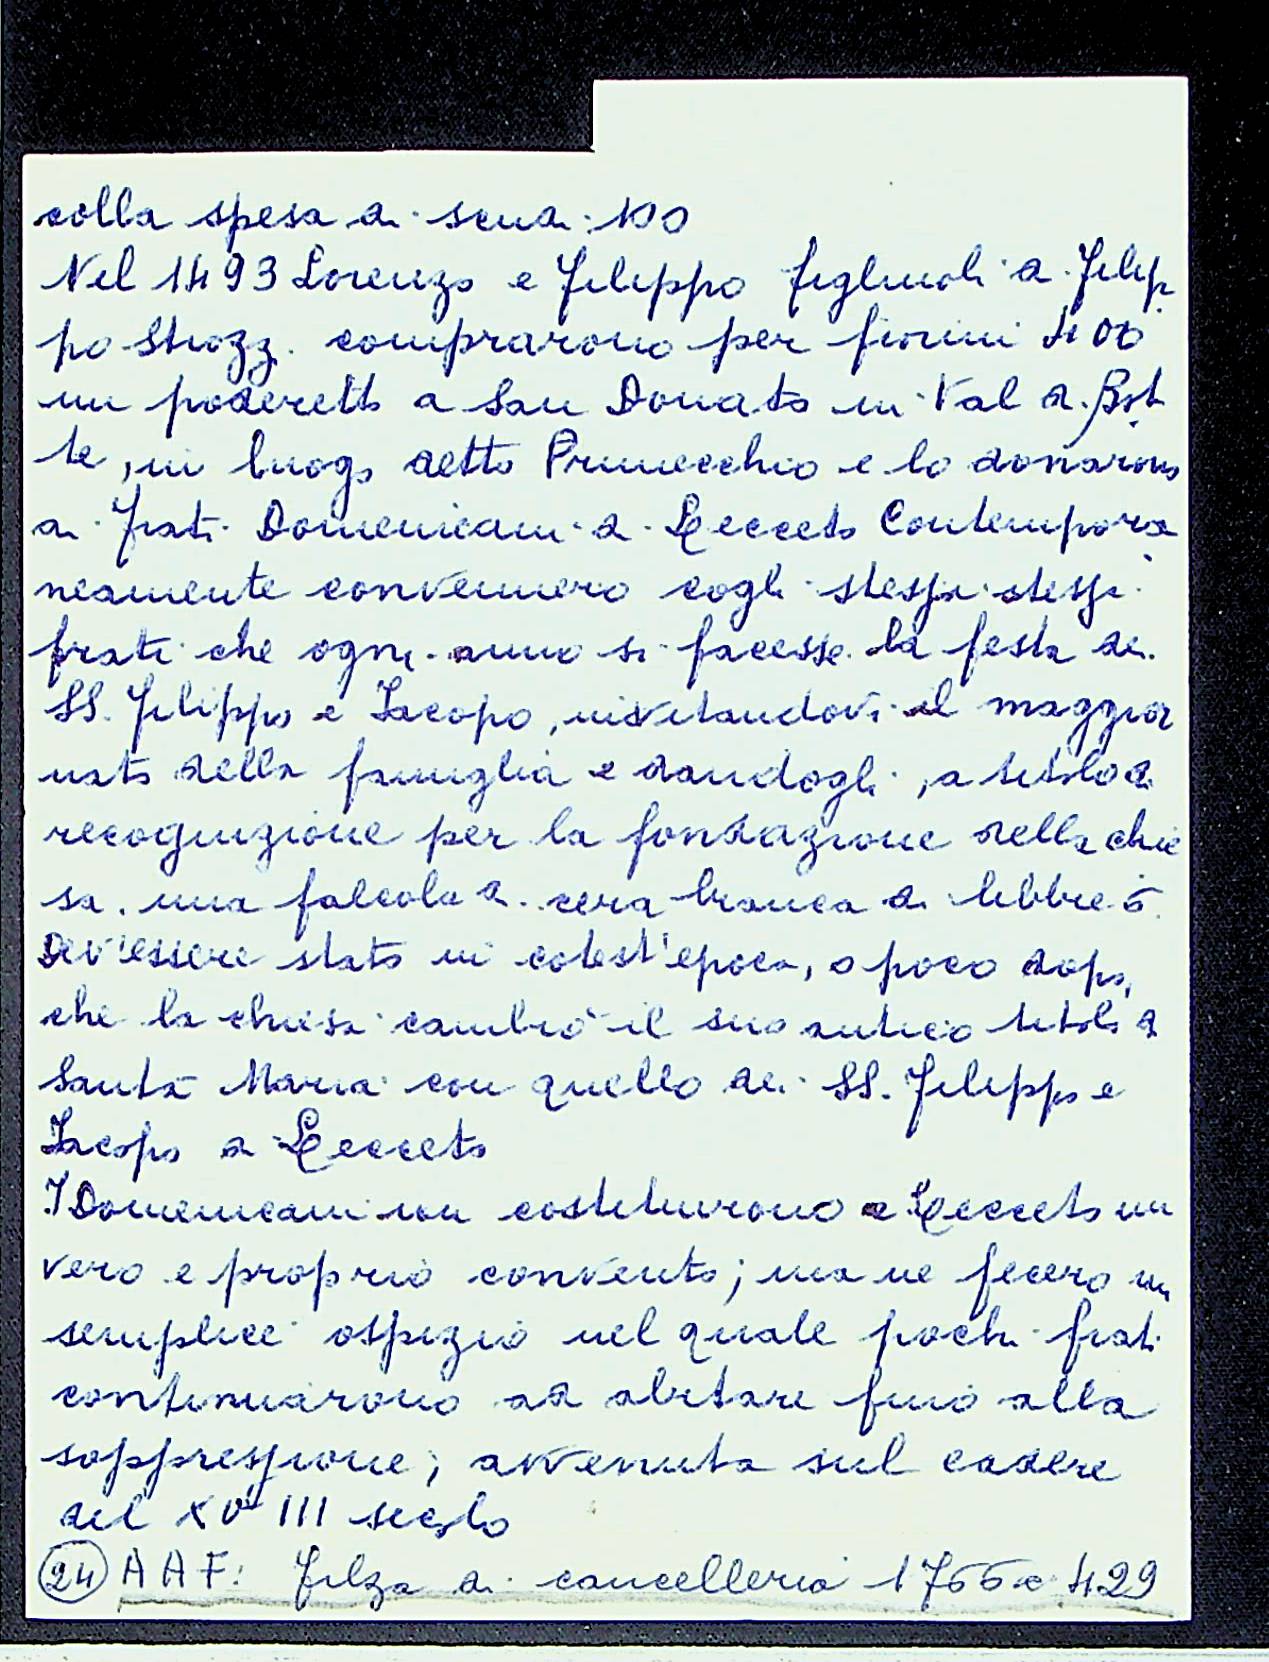 colla spesa di scudi 100
Nel 1493 Lorenzo e Filippo figliuoli di Filip
po Strozzi comprarono per fiorini 400
un poderetto a San Donato in Val di Bot
te, in luogo detto Prunecchio e lo donarono
ai frati Domenicani di Lecceto Contempora
neamente convennero cogli stessi stessi
frati che ogni anno si facesse la festa dei
SS. Filippo e Iacopo, invitandovi il maggior
nato della famiglia e dandogli, a titolo di
recognizione per la fondazione della chie
sa, una falcola di cera bianca di libbre 6.
Dev'essere stato in cotest'epoca, o poco dopo,
che la chiesa cambiò il suo antico titolo di
Santa Maria con quello dei SS. Filippo e
Iacopo a Lecceto
I Domenicani non costituirono a Lecceto un
vero e proprio convento; ma ne fecero un
semplice ospizio nel quale pochi frati
continuarono ad abitare fino alla
soppressione; avvenuta sul cadere
del XVIII secolo
(24) A A F: Filza di cancelleria 1766 c 429